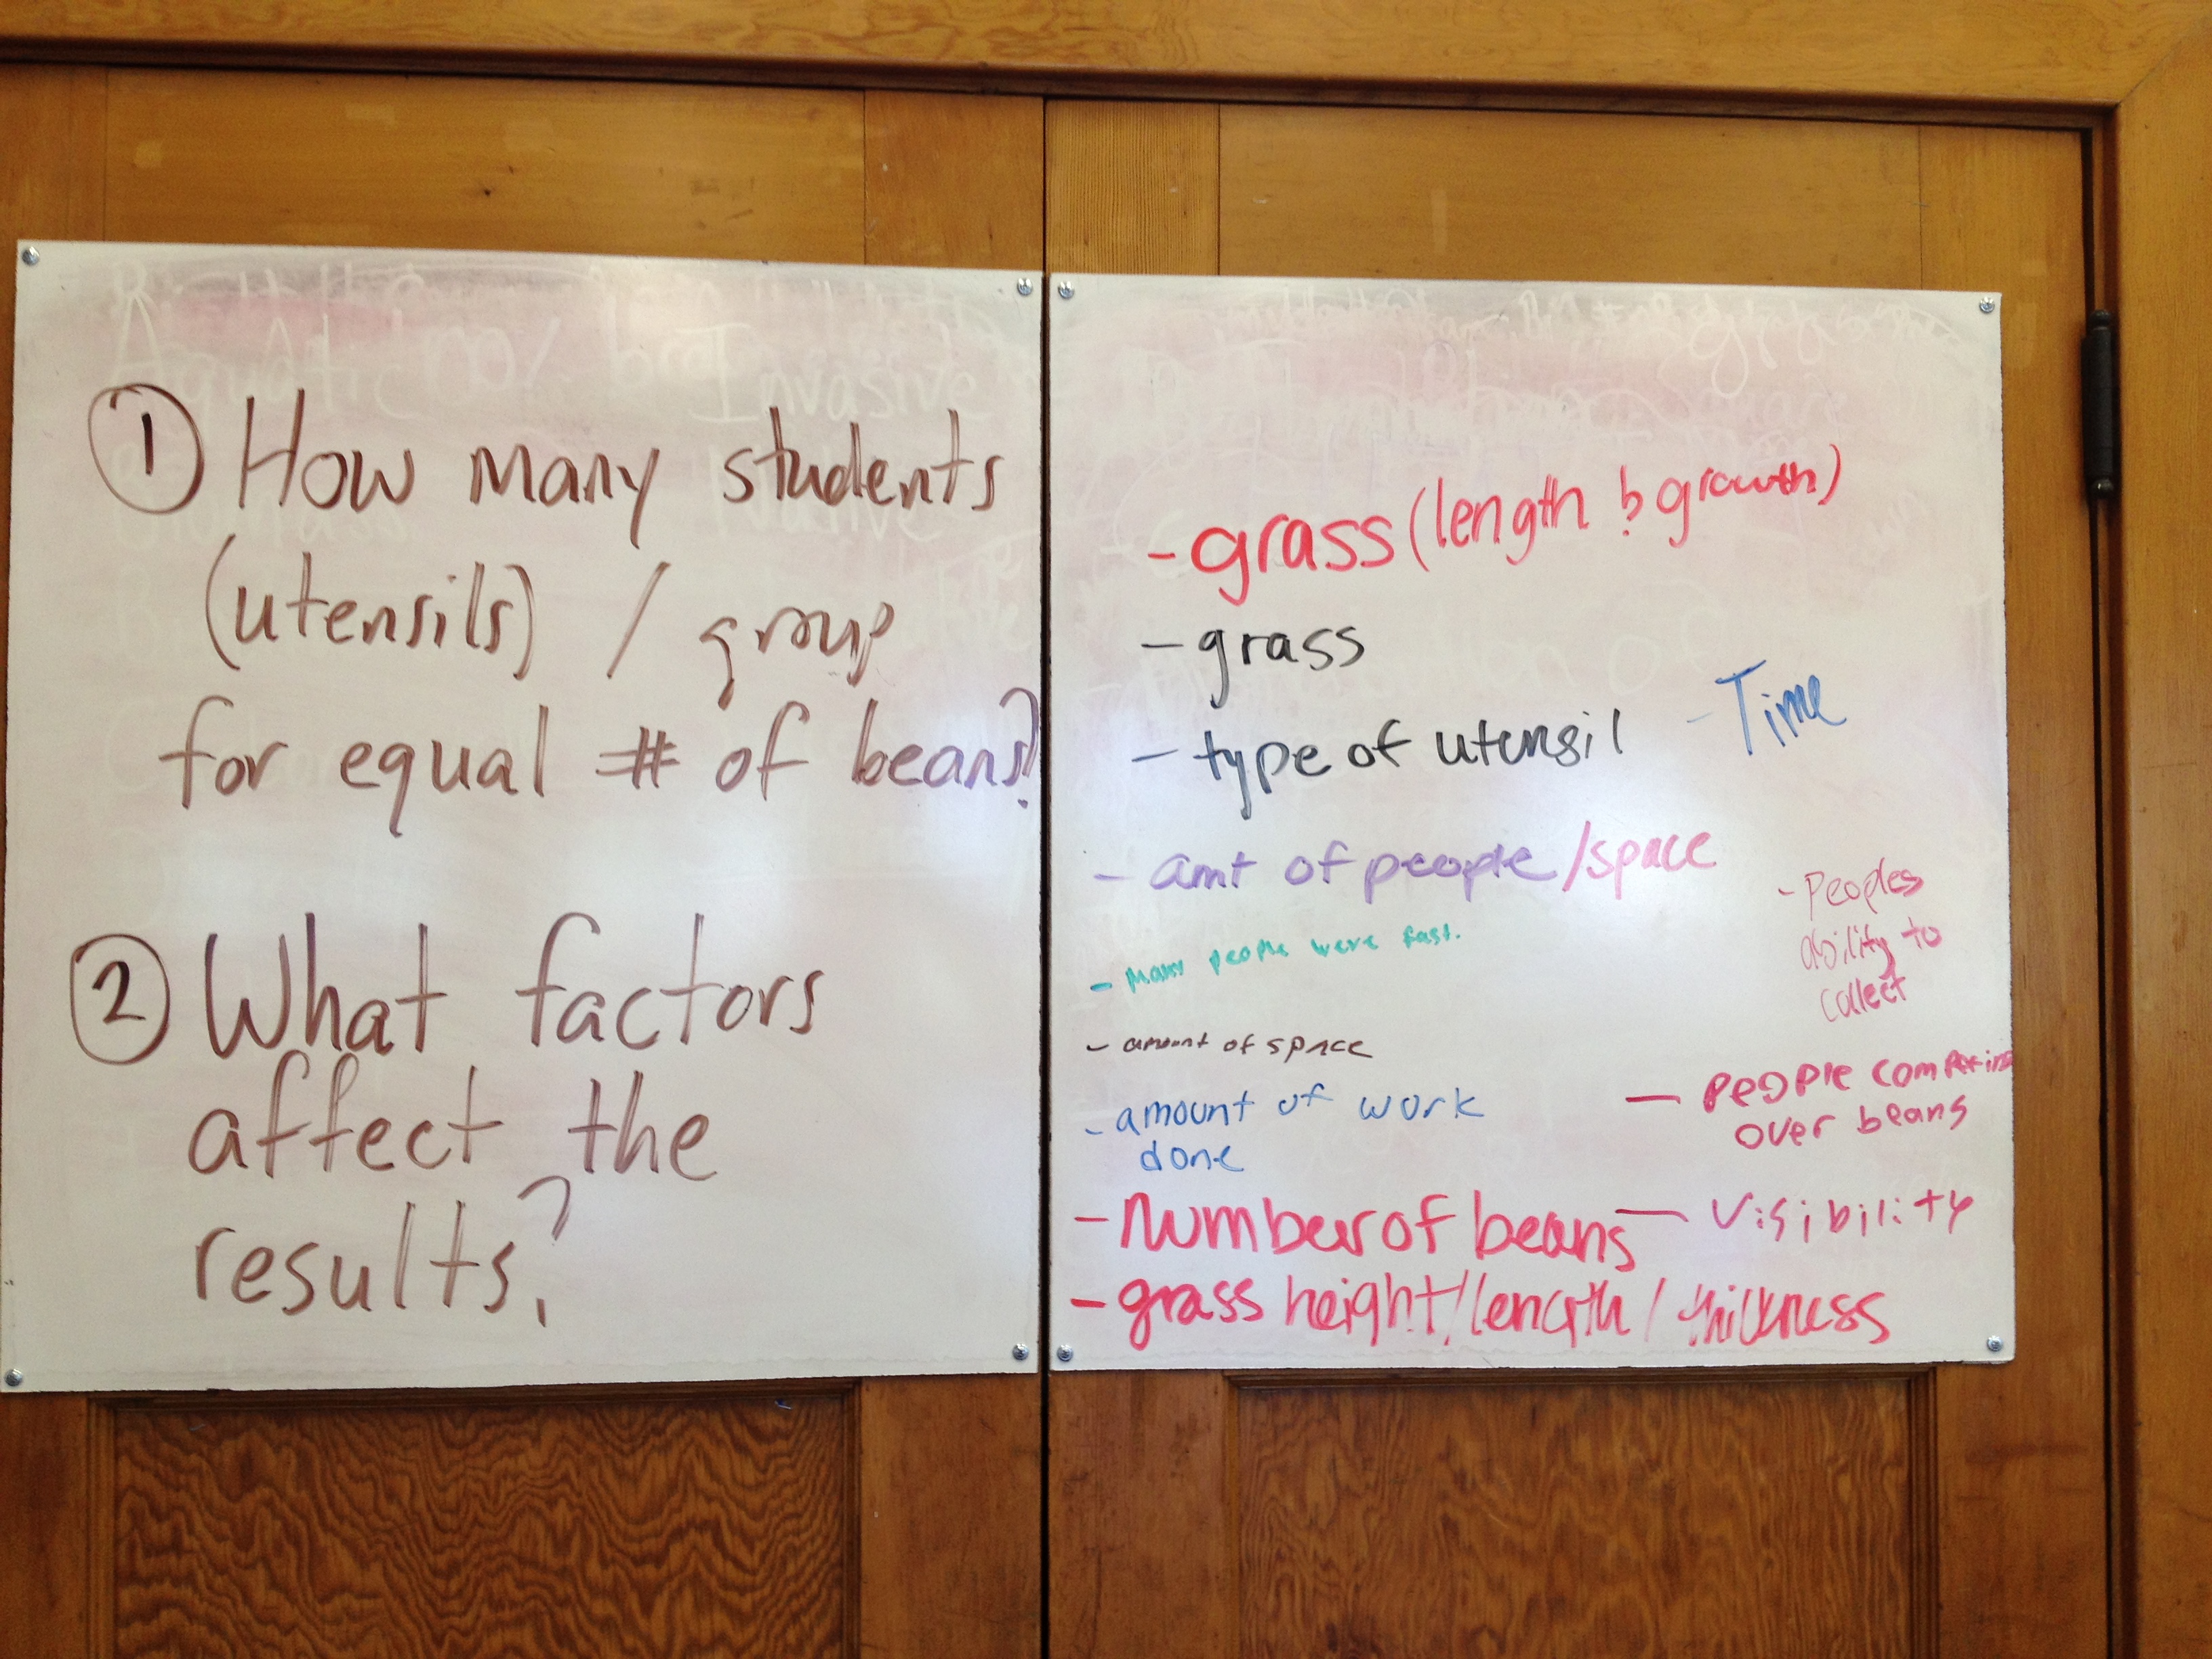 ① How many students
(utensils) / group
for equal # of beans?
② What factors
affect the
results?
- grass (length & growth)
- grass
- type of utensil
- Time
- amt of people/space
- Many people were fast.
- Peoples
ability to
collect
- amount of space
- amount of work
done
- People competing
over beans
- Number of beans
- Visibility
- grass height/length/thickness
Aquatic
Invasive
Native